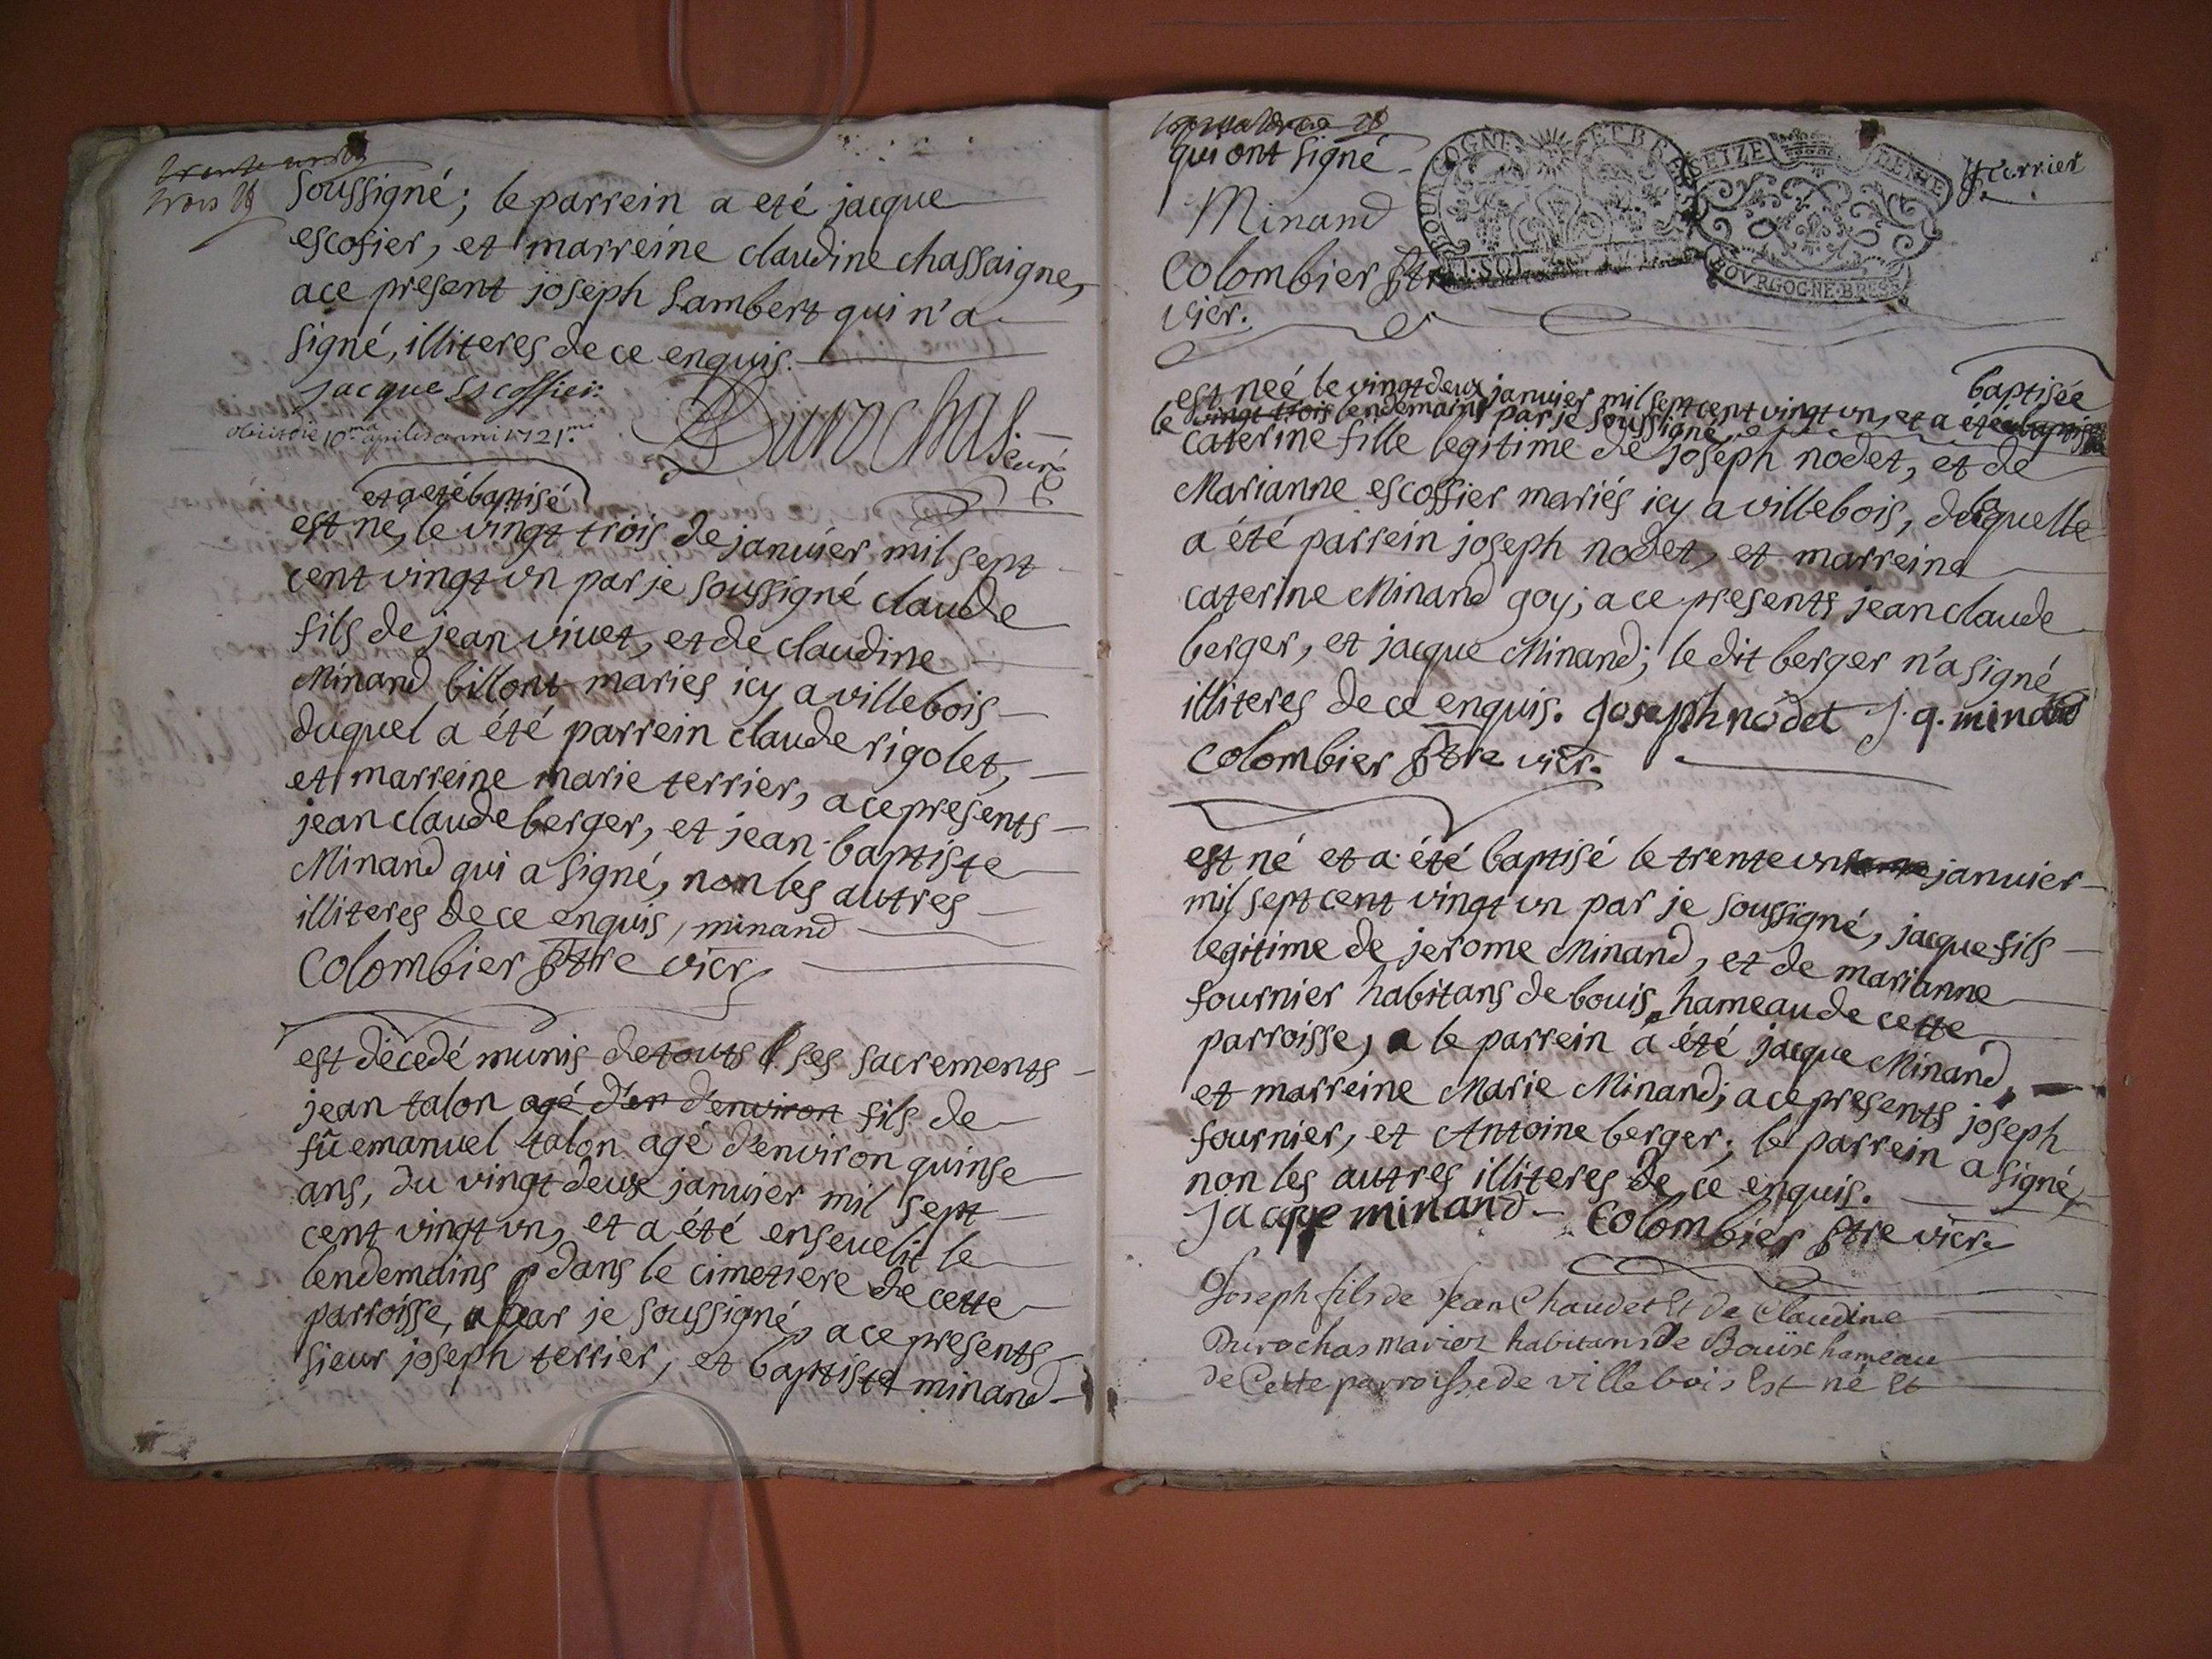 trois
soussigné; le parrein a eté jacque
escofier, et marreine claudine chassaigne,
ace present joseph Lambert qui n'a
signé, illiteres de ce enquis.
jacque Escoffier
obiit die 10.ma aprilis anni 1721.mi
Durochas
curé
et a eté baptisé
est né, le vingt trois de janvier mil sept
cent vingt vn par je soussigné claude
fils de jean vivet, et de claudine
Minand billont mariés icy a villebois
duquel a été parrein claude rigolet,
et marreine marie terrier, ace presents
jean claude berger, et jean-baptiste
Minand qui a signé, non les autres
illiteres de ce enquis, minand
Colombier ptre vicr
est décedé munis de touts ses sacrements
jean talon agé d'en d'environ fils de
fû emanuel talon agé d'environ quinse
ans, du vingt deux janvier mil sept
cent vingt vn, et a été ensevelit le
lendemains dans le cimetiere de cette
parroisse, par je soussigné, ace presents
sieur joseph terrier, et baptiste minand
qui ont signé
Minand
terrier
Colombier ptre
vicr.
BOURGOGNE ET BRESSE
SEIZE DEN
BOVRGOGNE·BRESSE
baptisée
est neé le vingt deux janvier mil sept cent vingt vn, et a été baptisé
le vingt trois lendemains par je soussigné
caterine fille legitime de joseph nodet, et de
Marianne escoffier mariés icy a villebois, de laquelle
a été parrein joseph nodet, et marreine
caterine Minand goy; ace presents jean claude
berger, et jacque Minand; le dit berger n'a signé
illiteres de ce enquis. Joseph nodet j.q. minand
Colombier ptre vicr.
est né et a été baptisé le trente vn janvier
mil sept cent vingt vn par je soussigné, jacque fils
legitime de jerome Minand, et de marianne
fournier habitans de bouis hameau de cette
parroisse, le parrein a été jacque Minand,
et marreine Marie Minand; ace presents joseph
fournier, et Antoine berger; le parrein a signé,
non les autres illiteres de ce enquis.
jacque minand Colombier ptre vicr.
Joseph fils de Jean Chaudet Et de Claudine
Durochas mariez habitans de Bouix hameau
de Cette parroisse de villebois Est né Et